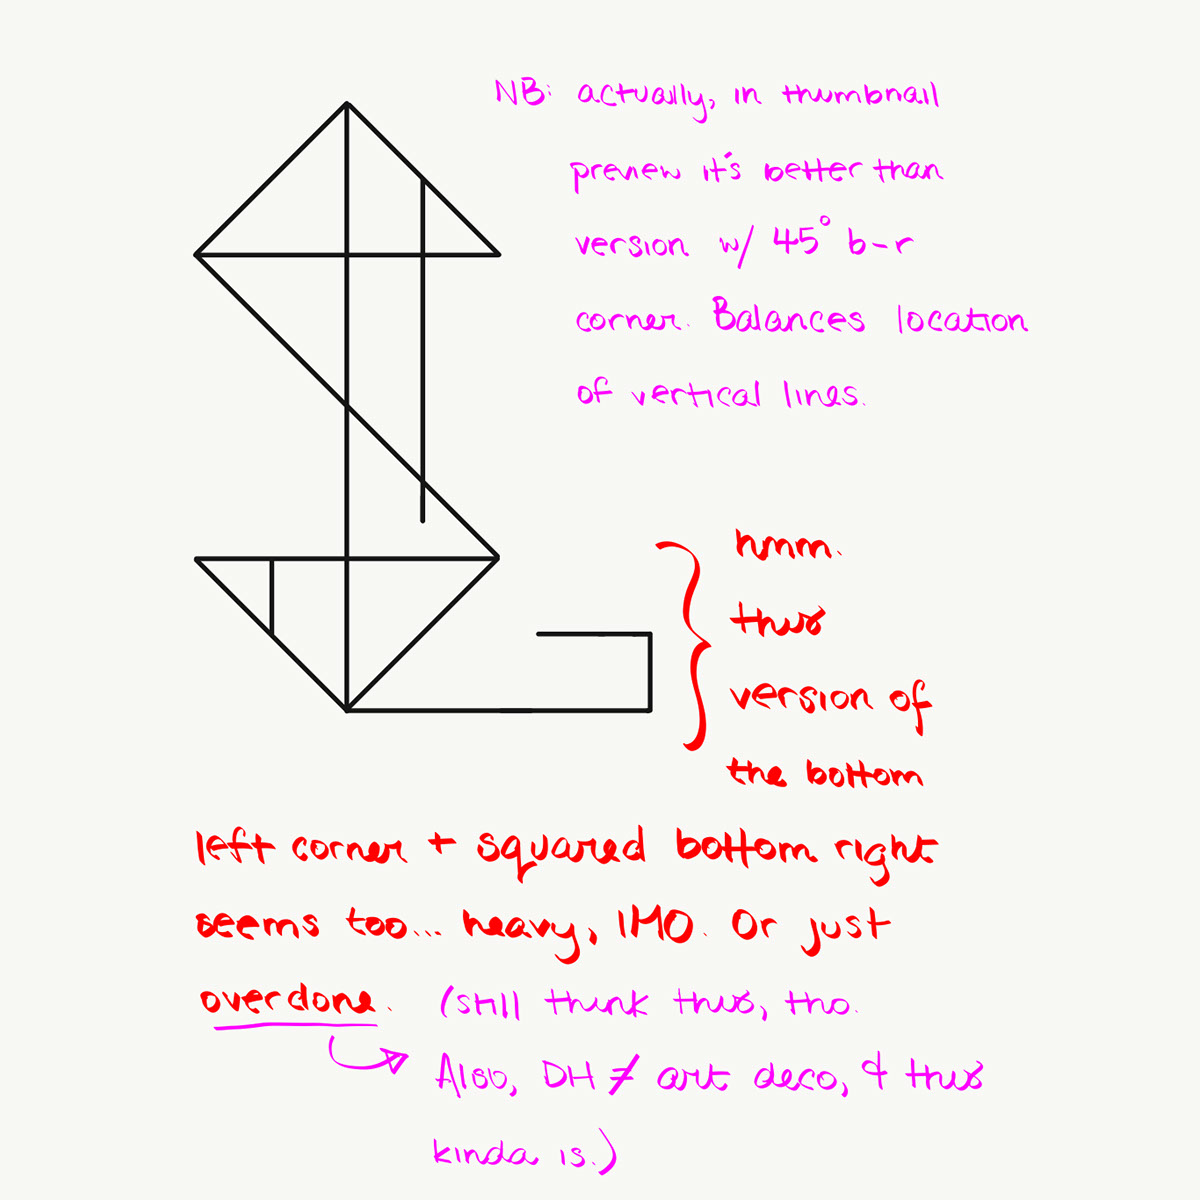 NB: actually, in thumbnail
preview it's better than
version w/ 45° b-r
corner. Balances location
of vertical lines.
hmm.
this
version of
the bottom
left corner + squared bottom right
seems too... heavy, IMO. Or just
overdone. (still think this, tho.
Also, DH ≠ art deco, & this
kinda is.)